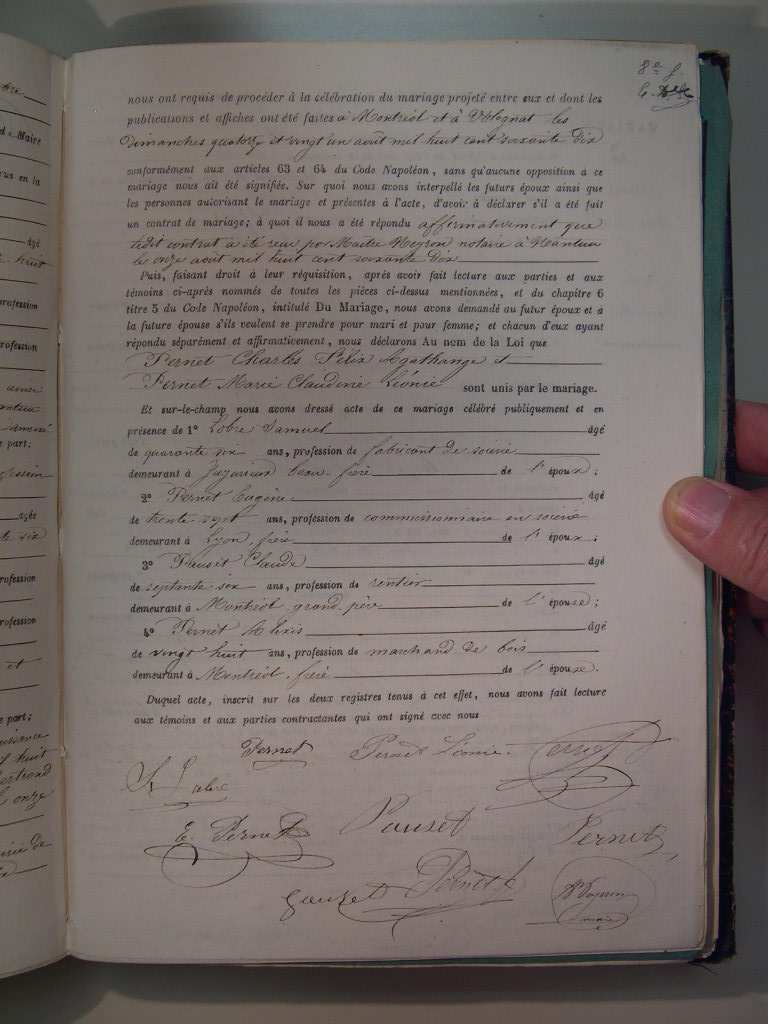 8e f.
nous ont requis de procéder à la célébration du mariage projeté entre eux et dont les
publications et affiches ont été faites à Montréal et à Volognat les
Dimanches quatorze et vingt un août mil huit cent soixante dix
conformément aux articles 63 et 64 du Code Napoléon, sans qu'aucune opposition à ce
mariage nous ait été signifiée. Sur quoi nous avons interpellé les futurs époux ainsi que
les personnes autorisant le mariage et présentes à l'acte, d'avoir à déclarer s'il a été fait
un contrat de mariage; à quoi il nous a été répondu affirmativement que
ledit contrat a été reçu par Maître Neyron notaire à Nantua
le onze août mil huit cent soixante dix
Puis, faisant droit à leur réquisition, après avoir fait lecture aux parties et aux
témoins ci-après nommés de toutes les pièces ci-dessus mentionnées, et du chapitre 6
titre 5 du Code Napoléon, intitulé Du Mariage, nous avons demandé au futur époux et à
la future épouse s'ils veulent se prendre pour mari et pour femme; et chacun d'eux ayant
répondu séparément et affirmativement, nous déclarons Au nom de la Loi que
Pernet Charles Félix Agathange et
Pernet Marie Claudine Léonie sont unis par le mariage.
Et sur-le-champ nous avons dressé acte de ce mariage célébré publiquement et en
présence de 1° Lobre Samuel âgé
de quarante six ans, profession de fabricant de soierie
demeurant à Jujurieux beau-frère de l'époux;
2° Pernet Eugène âgé
de trente sept ans, profession de commissionnaire en soierie
demeurant à Lyon, frère de l'époux;
3° Pauset Claude âgé
de septante six ans, profession de rentier
demeurant à Montréal grand-père de l'épouse;
4° Pernet Alexis âgé
de vingt huit ans, profession de marchand de bois
demeurant à Montréal, frère de l'épouse.
Duquel acte, inscrit sur les deux registres tenus à cet effet, nous avons fait lecture
aux témoins et aux parties contractantes qui ont signé avec nous
Pernet Pernet Léonie Pernet
S. Lobre
E. Pernet Pauset Pernet
Gouzet Pernet
maire